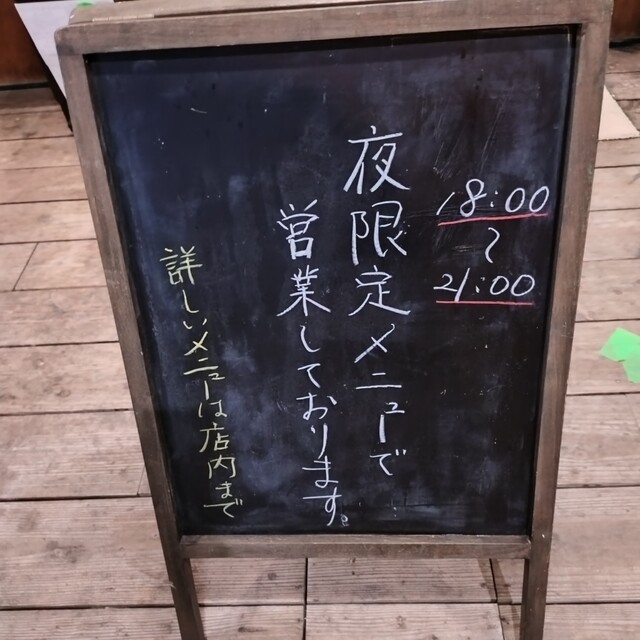 18:00
〜
21:00
夜限定メニューで
営業しております。
詳しいメニューは店内まで